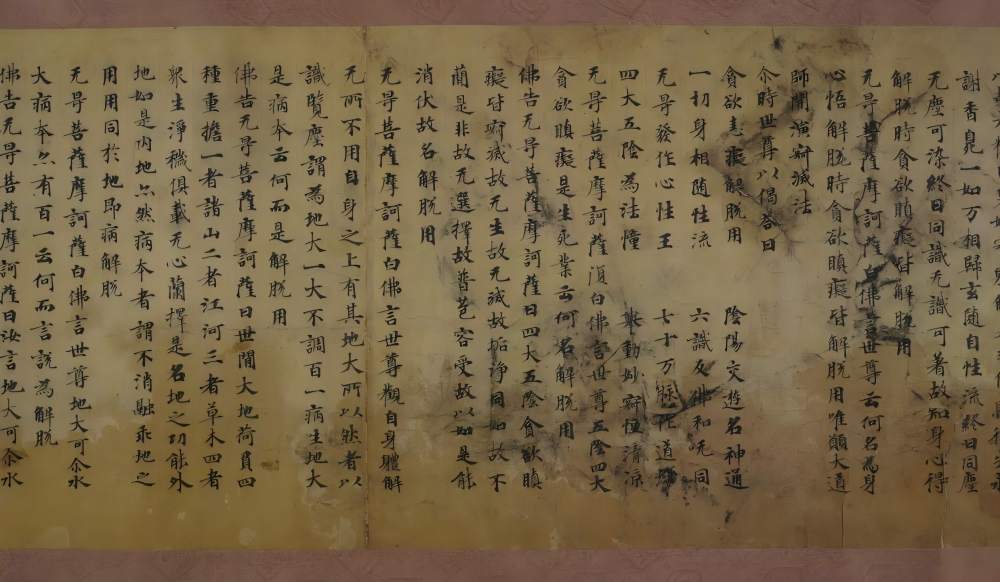 謝香見一如万相歸玄随自性流終日同塵
无塵可染終日同識无識可著故知身心得
解脱時貪欲瞋癡皆解脱用
无㝵菩薩摩訶薩白佛言世尊云何名爲身
心悟解脱時貪欲瞋癡皆解脱用唯願大道
師開演寂滅法
尒時世尊以偈荅曰
貪欲恚癡解脱用 陰陽交遊名神通
一切身相随性流 六識及佛和呪同
无㝵發作心性王 七十万 作道
四大五陰為法幢 動妙寂恒清涼
无㝵菩薩摩訶薩湏白佛言世尊五陰四大
貪欲瞋癡是生死業云何名解脱用
佛告无㝵菩薩摩訶薩曰四大五陰貪欲瞋
癡皆寂滅故无生故无滅故垢諍同如故不
蕳是非故无選擇故普苞容受故以如是能
消伏故名解脱用
无㝵菩薩摩訶薩白佛言世尊觀自身體解
无所不用自身之上有其地大所以然者以
識覽塵謂為地大一大不調百一病生地大
是病本云何而是解脱用
佛告无㝵菩薩摩訶薩曰世閒大地荷負四
種重擔一者諸山二者江河三者草木四者
衆生淨穢俱載无心蕳擇是名地之功能外
地如是内地亦然病本者謂不消融乖地之
用用同於地即病解脱
无㝵菩薩摩訶薩白佛言世尊地大可尒水
大病本亦有百一云何而言説為解脱
佛告无㝵菩薩摩訶薩曰汝言地大可尒水